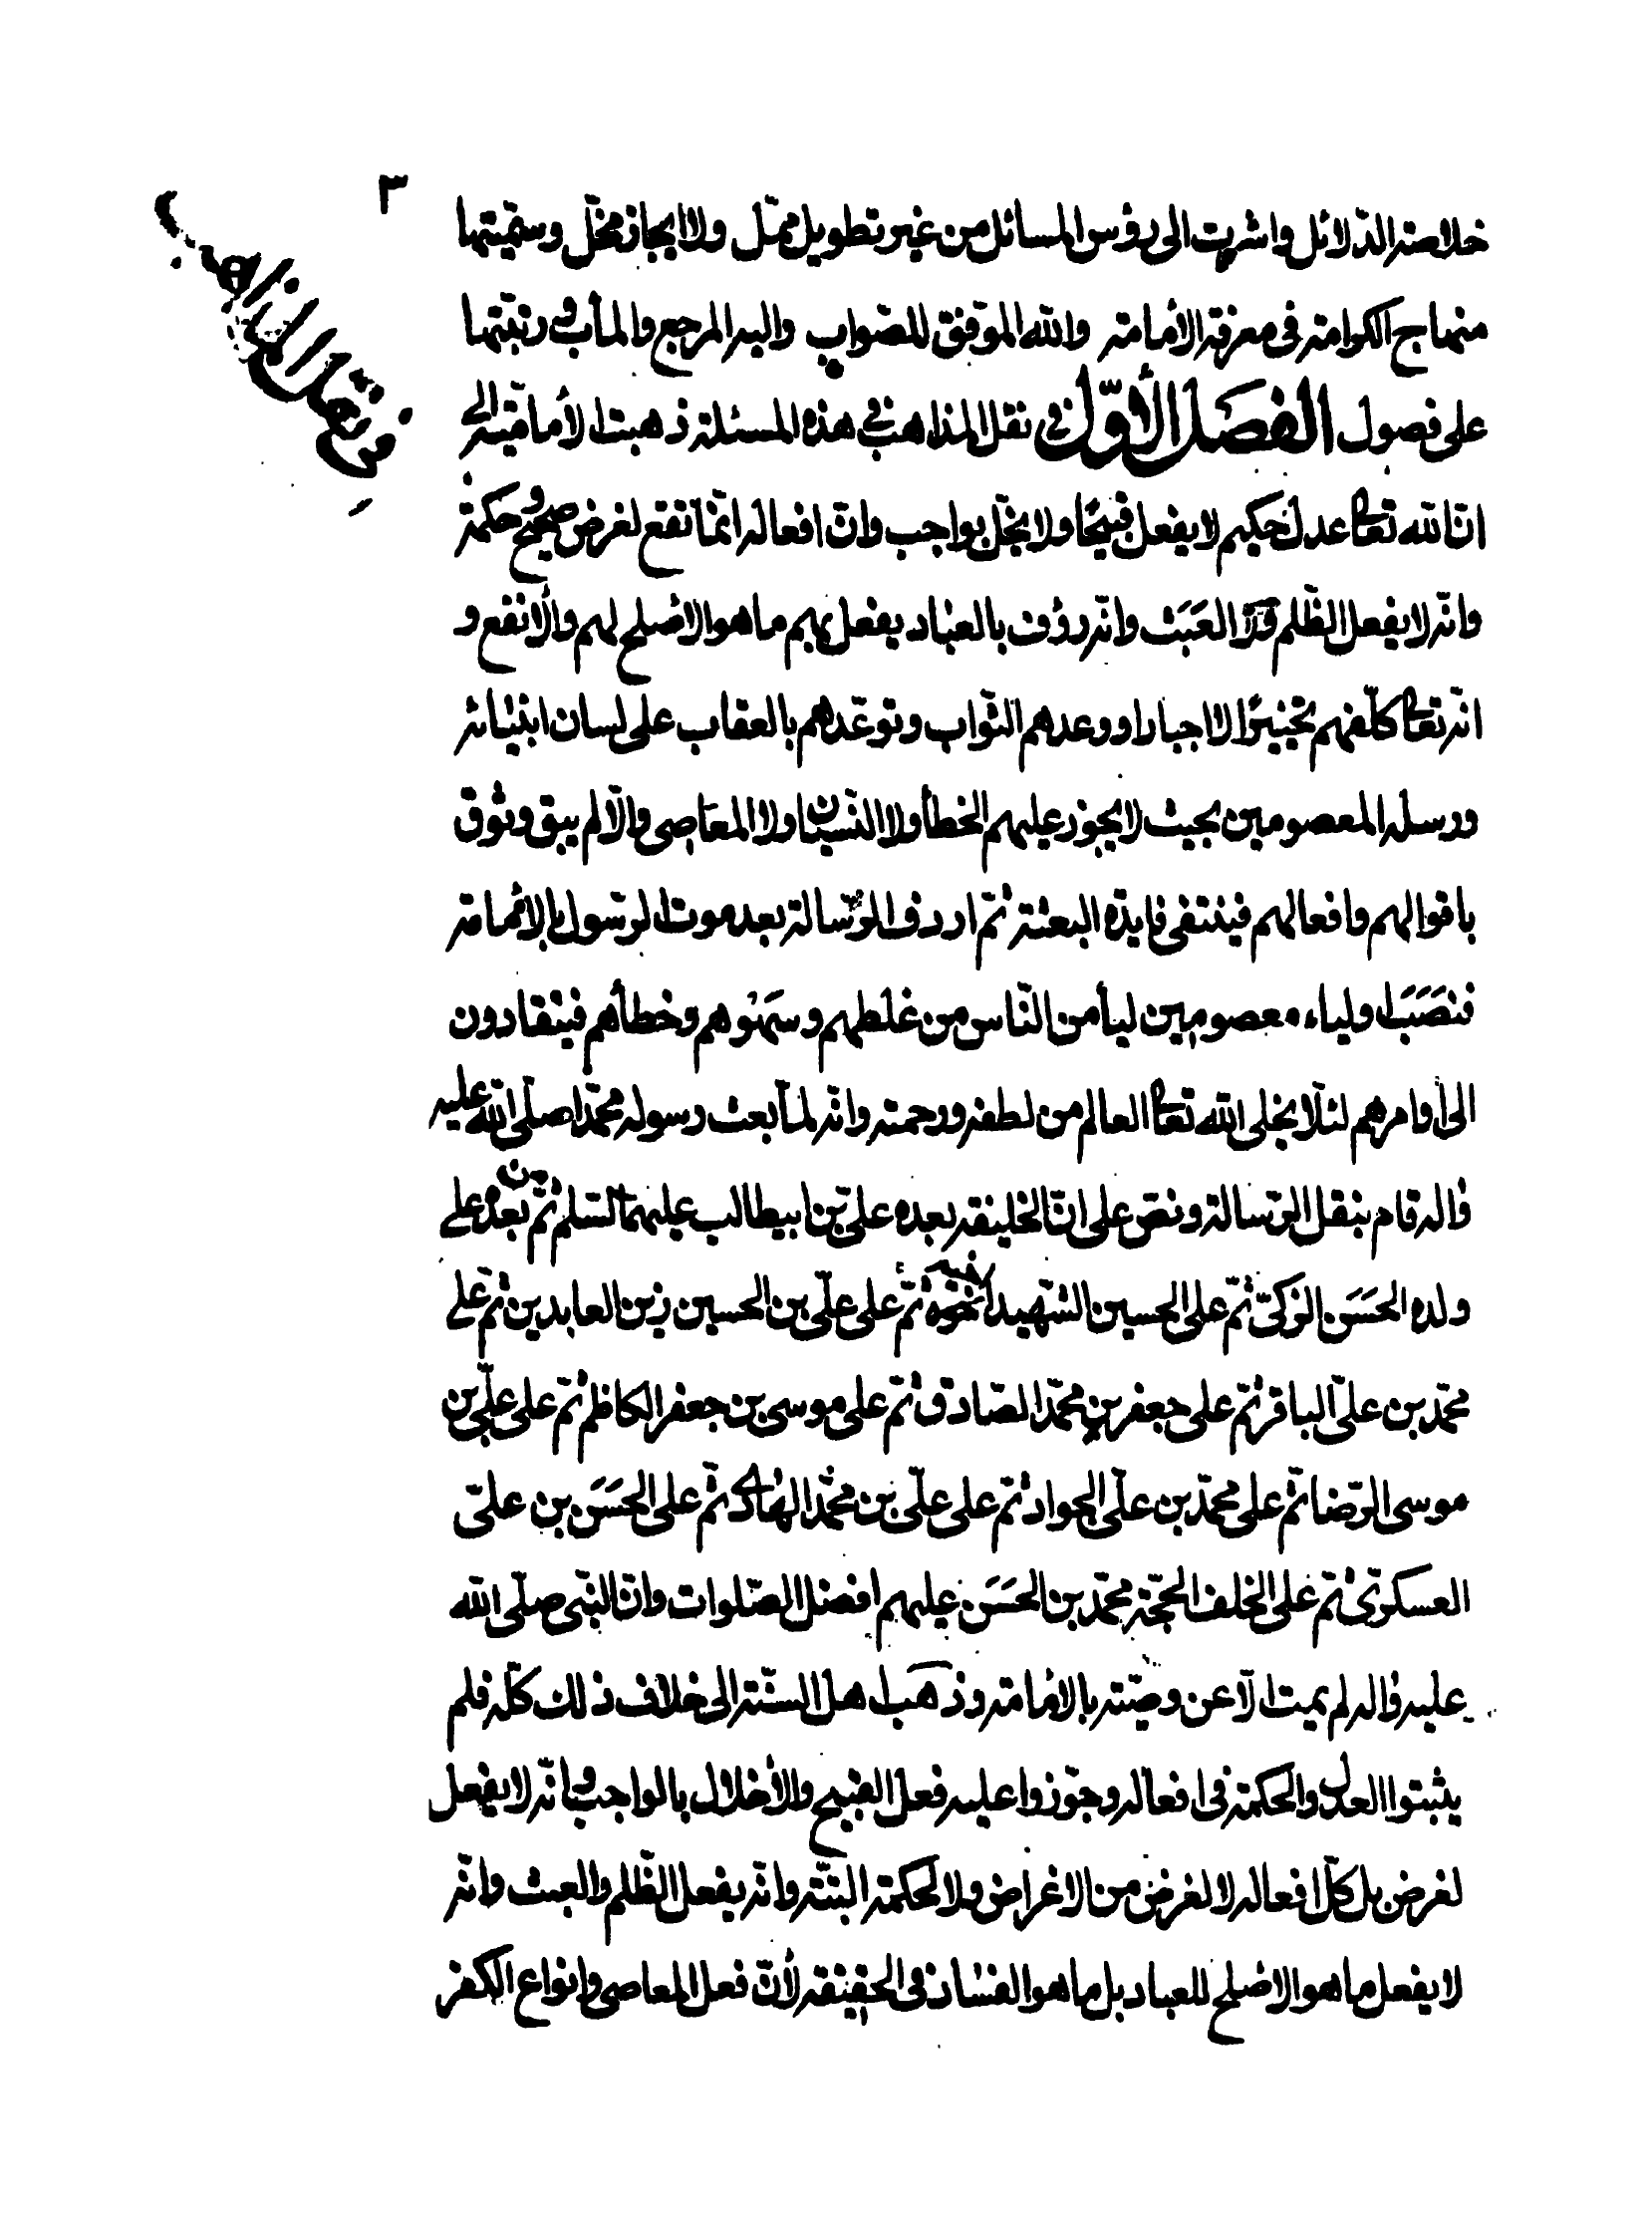 ٣
خلاصة الدلائل واشرت الى رؤس المسائل من غير تطويل ممّل ولا ايجاز مخّل وسمّيتها
منهاج الكرامة فى معرفة الأمامة والله الموفق للصّواب واليه المرجع والمأب ورتبتها
على فصول الفصَل الأوّل فى نقل المذاهب فى هذه المسئلة ذهبت الأماميّة الى
انّ الله تعالى عدل حكيم لا يفعل قبيحًا ولا يخّل بواجب وانّ افعاله انّما تقع لغرض صحيح وحكمة
وانّه لا يفعل الظّلم ولا العَبَث وانّه رؤف بالعباد يفعل بهم ما هو الاصلح لهم والأنفع و
انّه تعالى كلّفهم تخييرًا لا اجبارا ووعدهم الثّواب وتوعّدهم بالعقاب على لسان انبيائه
ورسله المعصومين بحيث لا يجوز عليهم الخطأ ولا النّسيان ولا المعَاصى والّا لم يبق وثوق
باقوالهم وافعالهم فينتفى فايدة البعثة ثمّ اردف الرّسالة بعد موت الرّسول بالإمامة
فنصَبَ اولياء معصومين ليأمن النّاس من غلطهم وسَهوهم وخطأهم فينقادون
الى أوامرهم لئلّا يخلى الله تعالى العالم من لطفه ورحمته وانّه لمّا بعث رسوله محمّدا صلّى الله عليه
واله قام بنقل الرّسالة ونصّ على انّ الخليفة بعده علىّ بن ابيطالب عليهما السّلم ثمّ من بعده على
ولده الحسَن الزكىّ ثمّ على الحسين الشّهيد اخيه ثمّ على علىّ بن الحسين زين العابدين ثمّ على
محمّد بن علىّ الباقر ثمّ على جعفر بن محمّد الصّادق ثمّ على موسى بن جعفر الكاظم ثمّ على علىّ بن
موسى الرّضا ثمّ على محمّد بن علىّ الجواد ثمّ على علىّ بن محمّد الهادى ثمّ على الحسَن بن علىّ
العسكرىّ ثمّ على الخلف الحجّة محمّد بن الحسَن عليهم افضل الصّلوات وانّ النّبى صلّى الله
عليه واله لم يمت الّا عن وصيّة بالامامة وذهب اهل السنّة الى خلاف ذلك كلّه فلم
يثبتوا العدل والحكمة فى افعاله وجوّزوا عليه فعل القبيح والأخلال بالواجب وانّه لا يفعل
لغرض بل كلّ افعاله لا لغرض من الاغراض ولا لحكمة البتّة وانّه يفعل الظّلم والعبث وانّه
لا يفعل ما هو الاصلح للعباد بل ما هو الفساد فى الحقيقة لأنّ فعل المعاصى وانواع الكفر